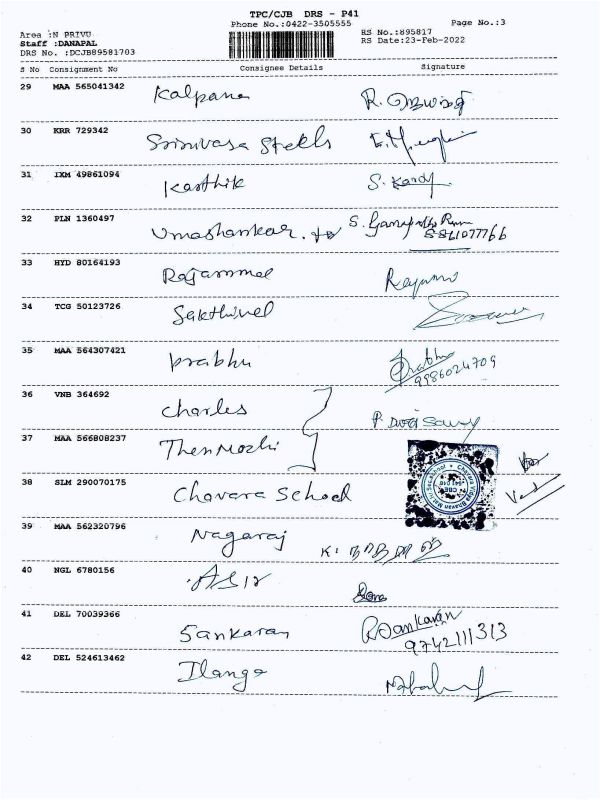 TPC/CJB DRS - P41
Phone No.:0422-3505555
Page No.:3
Area :N PRIVU
Staff :DANAPAL
DRS No. :DCJB89581703
RS No.:895817
RS Date:23-Feb-2022
S No Consignment No Consignee Details Signature
29 MAA 565041342 Kalpana R.
30 KRR 729342 Srinivasa Steels
31 IXM 49861094 Karthik S.
32 PLN 1360497 Umashankar. S.
33 HYD 80164193 Rajammal
34 TCG 50123726 Sakthivel
35 MAA 564307421 Prabhu Prabhu
9986024709
36 VNB 364692 Charles P.
37 MAA 566808237 ThenMozhi
38 SLM 290070175 Chavara School
39 MAA 562320796 Nagaraj K.
40 NGL 6780156 ASIR
41 DEL 70039366 Sankaran Sankaran
9742111313
42 DEL 524613462 Ilango